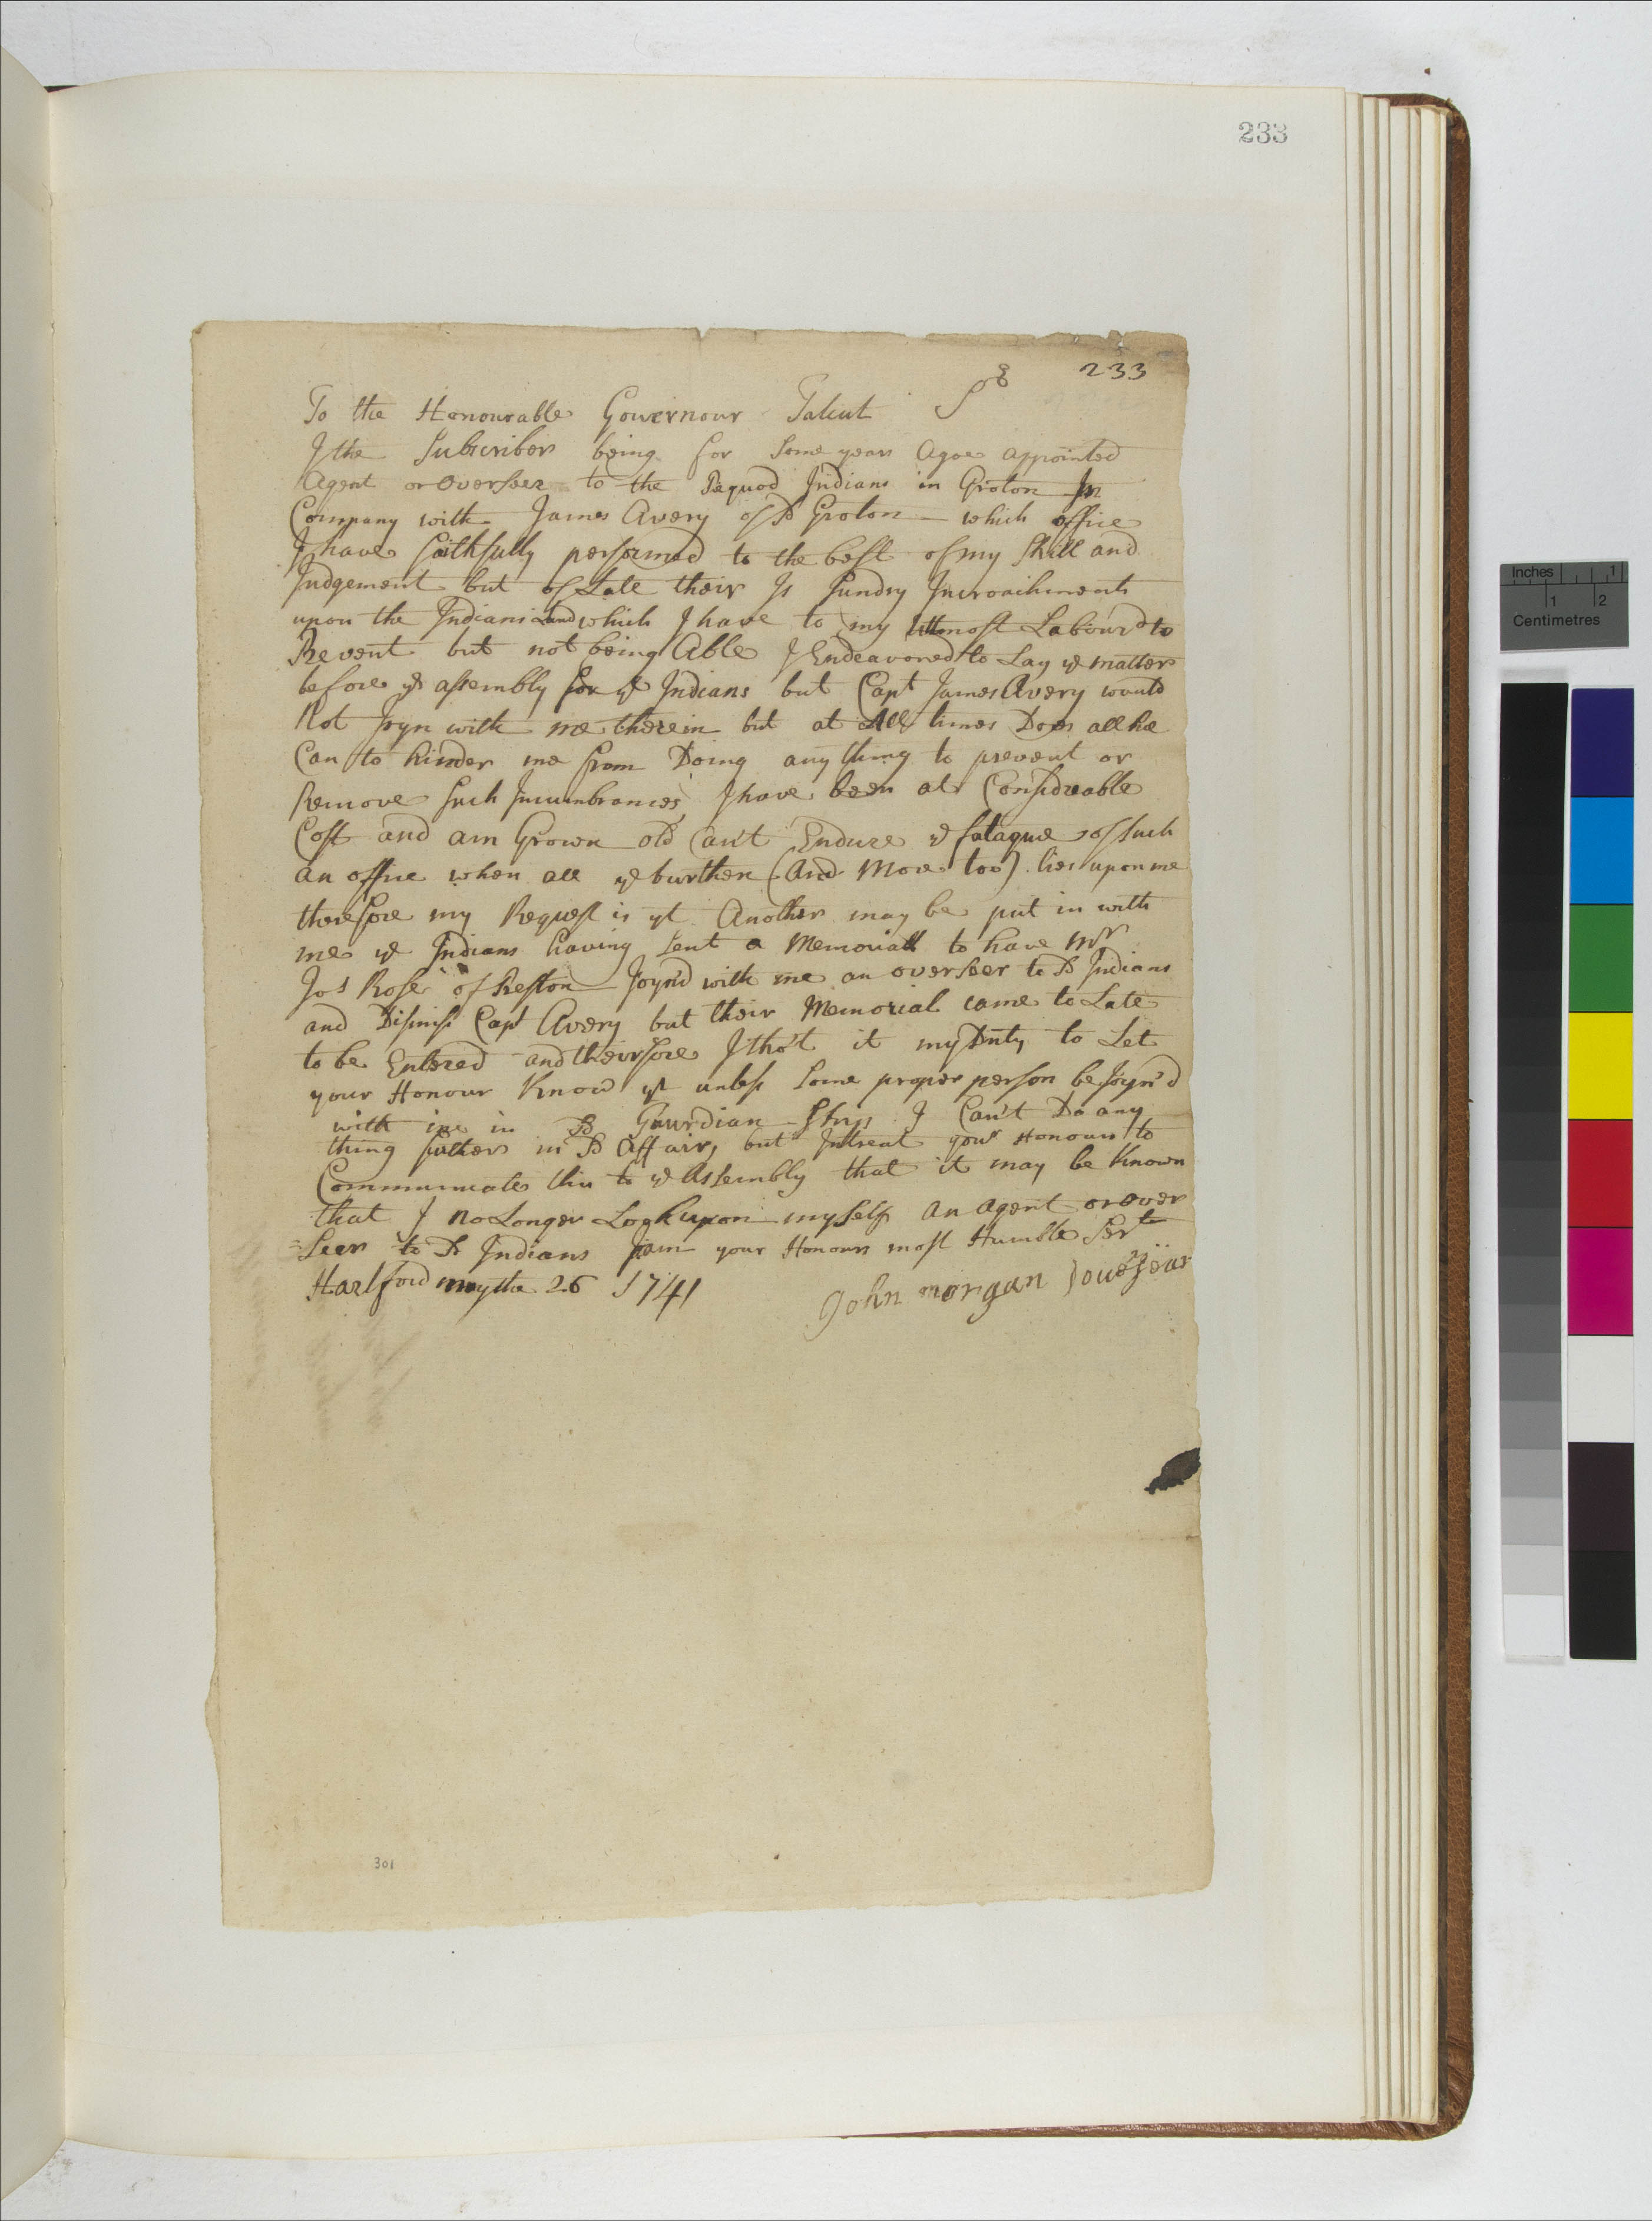 233
233
To the Honourable Governour Talcut Sr
I the Subscriber being for Some years agoe appointed
Agent or Overseer to the Pequod Indians in Groton In
Company with James Avery of sd Groton — which office
I have faithfully performed to the best of my Skill and
Judgement but of Late their Is Sundry Incroachments
upon the Indians Land which I have to my uttmost Labour'd to
Prevent but not being Able I Endeavored to Lay ye matter
before ye assembly for ye Indians but Capt James Avery would
Not Joyn with me therein but at All times Does all he
Can to hinder me from Doing any thing to prevent or
Remove Such Incumbrances I have been at Considrable
Cost and am Grown old Can't Endure ye fatague of such
an office when all ye burthen (And More too) lies upon me
therefore my Request is yt Another may be put in with
me ye Indians having Sent a Memoriall to have Mr
Jos Rose of Preston Joyn'd with me an overseer to sd Indians
and Dismiss Capt Avery but their Memorial came to Late
to be Entered and theirfore I tho't it my Duty to Let
your Honour Know yt unless Some proper person be Joyn'd
with me in sd Gaurdian Ship I Can't Do any
thing futher in sd Affair, but Intreat your Honour to
Communicate this to ye Assembly that it may be Known
that I no Longer Look upon my self an Agent or over
=Seer to sd Indians I am your Honours most Humble Servt
Hartford may the 26 1741
John morgan
301
Inches 1
1 2
Centimetres